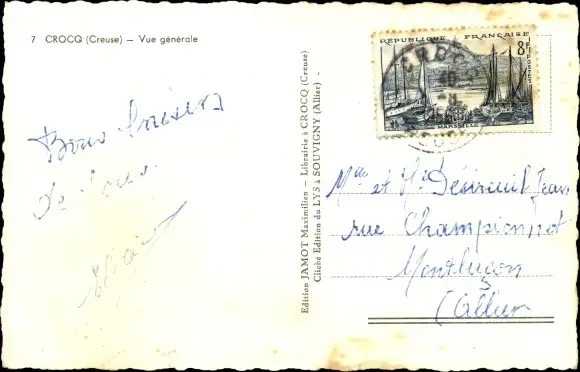 7 CROCQ (Creuse) — Vue générale
Bons baisers
de tous.
Edition JAMOT Maximilien — Librairie à CROCQ (Creuse)
Cliché Edition du LYS à SOUVIGNY (Allier)
RÉPUBLIQUE FRANÇAISE
8F
POSTES
MARSEILLE
CROCQ
Mme et Mr Désireuil Jean
rue Championnet
Montluçon
(Allier